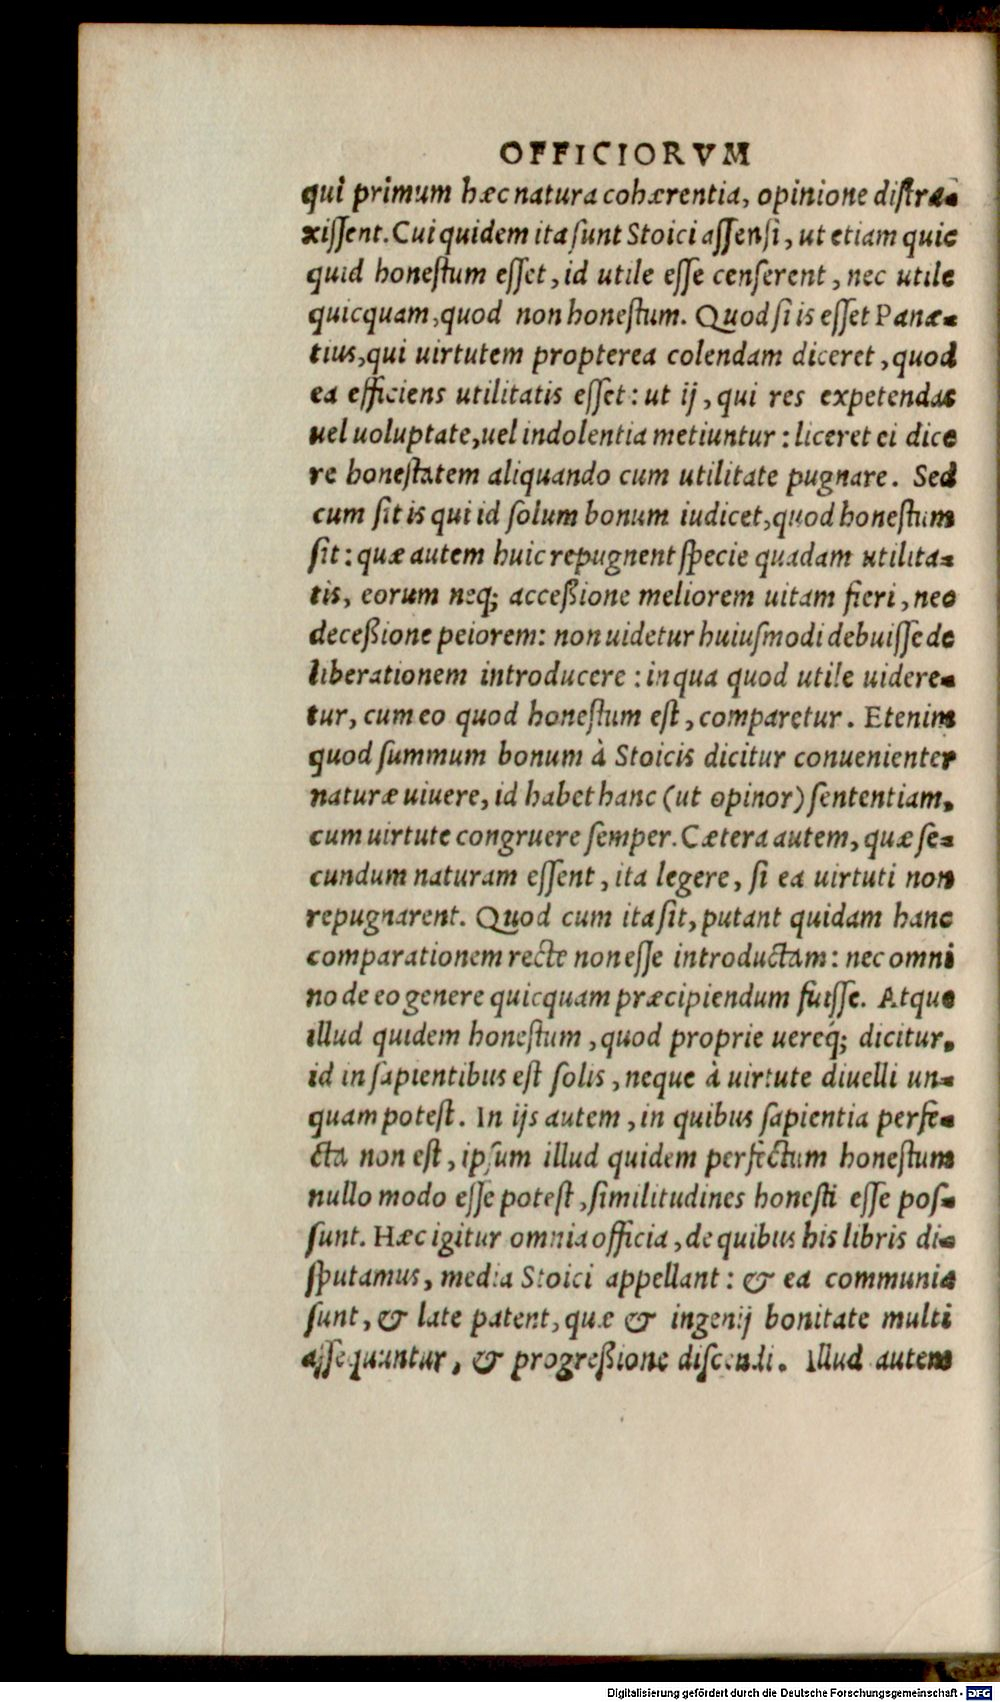 OFFICIORVM
qui primum hæc natura cohærentia, opinione distra-
xissent. Cui quidem ita sunt Stoici assensi, ut etiam quic
quid honestum esset, id utile esse censerent, nec utile
quicquam, quod non honestum. Quod si is esset Panæ-
tius, qui uirtutem propterea colendam diceret, quod
ea efficiens utilitatis esset: ut ij, qui res expetendas
uel uoluptate, uel indolentia metiuntur: liceret ei dice
re honestatem aliquando cum utilitate pugnare. Sed
cum sit is qui id solum bonum iudicet, quod honestum
sit: quæ autem huic repugnent specie quadam utilita-
tis, eorum neq; acceßione meliorem uitam fieri, nec
deceßione peiorem: non uidetur huiusmodi debuisse de
liberationem introducere: in qua quod utile uidere-
tur, cum eo quod honestum est, comparetur. Etenim
quod summum bonum à Stoicis dicitur conuenienter
naturæ uiuere, id habet hanc (ut opinor) sententiam,
cum uirtute congruere semper. Cætera autem, quæ se-
cundum naturam essent, ita legere, si ea uirtuti non
repugnarent. Quod cum ita sit, putant quidam hanc
comparationem recte non esse introductam: nec omni
no de eo genere quicquam præcipiendum fuisse. Atque
illud quidem honestum, quod proprie uereq́; dicitur,
id in sapientibus est solis, neque à uirtute diuelli un-
quam potest. In ijs autem, in quibus sapientia perfe-
cta non est, ipsum illud quidem perfectum honestum
nullo modo esse potest, similitudines honesti esse pos-
sunt. Hæc igitur omnia officia, de quibus his libris di-
sputamus, media Stoici appellant: & ea communia
sunt, & late patent, quæ & ingenij bonitate multi
assequuntur, & progreßione discendi. Illud autem
Digitalisierung gefördert durch die Deutsche Forschungsgemeinschaft - DFG